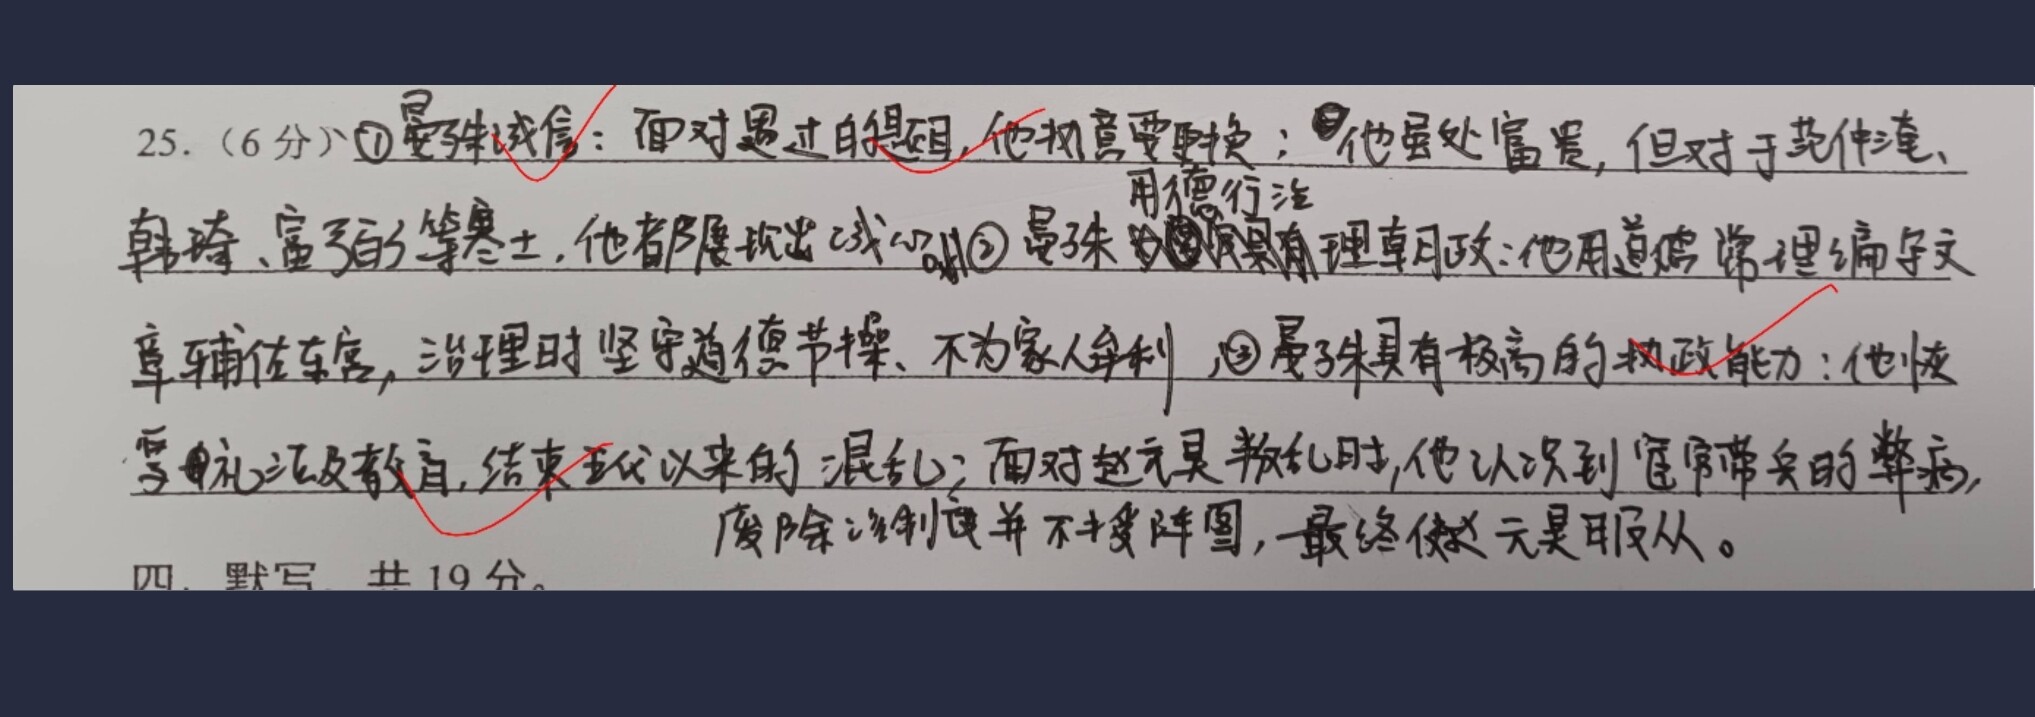 25.（6分）①晏殊诚信：面对遇过的题目，他执意要更换；他虽处富贵，但对于范仲淹、
韩琦、富弼等寒士，他都展现出诚心。②晏殊用德行治理朝政：他用道德常理编写文
章辅佐东宫，治理时坚守道德节操、不为家人牟利，③晏殊具有极高的执政能力：他恢
复礼法及教育，结束五代以来的混乱；面对赵元昊叛乱时，他认识到宦官带兵的弊病，
废除冷制度并不授阵图，最终使赵元昊服从。
四．默写．共19分。